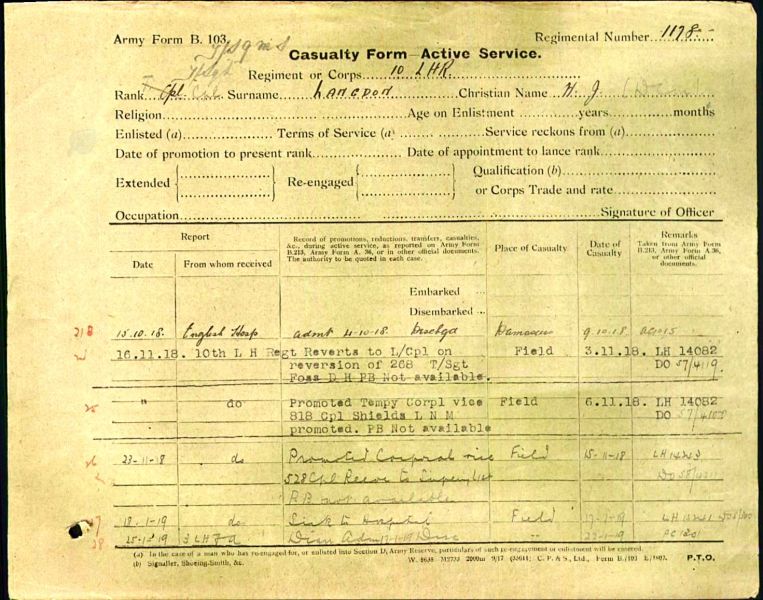 Army Form B. 103.
Regimental Number 1178
Casualty Form—Active Service.
Regiment or Corps 10 LHR
Rank Cpl Surname Langdon Christian Name H. J.
Religion Age on Enlistment years months
Enlisted (a) Terms of Service (a) Service reckons from (a)
Date of promotion to present rank Date of appointment to lance rank
Extended Re-engaged Qualification (b)
or Corps Trade and rate
Occupation Signature of Officer
Report
Date From whom received
Record of promotions, reductions, transfers, casualties,
&c., during active service, as reported on Army Form
B.213, Army Form A. 36, or in other official documents.
The authority to be quoted in each case.
Place of Casualty
Date of
Casualty
Remarks
Taken from Army Form
B.213, Army Form A. 36,
or other official
documents.
Embarked
Disembarked
15.10.18. English Hosp admt 4-10-18. Dischgd Damascus 9.10.18.
16.11.18. 10th L H Regt Reverts to L/Cpl on Field 3.11.18. LH 14082
reversion of 268 T/Sgt DO 57/4119
Foss D H PB Not available.
" do Promoted Tempy Corpl vice Field 6.11.18. LH 14082
818 Cpl Shields L N M DO
promoted. PB Not available
23-11-18 do Promoted Corporal vice Field 15-11-18
528 Cpl to
PB not available
18-1-19 do Sick to Hospital Field
25-1-19 3 LH
(a) In the case of a man who has re-engaged for, or enlisted into Section D, Army Reserve, particulars of such re-engagement or enlistment will be entered.
(b) Signaller, Shoeing-Smith, &c.
P.T.O.